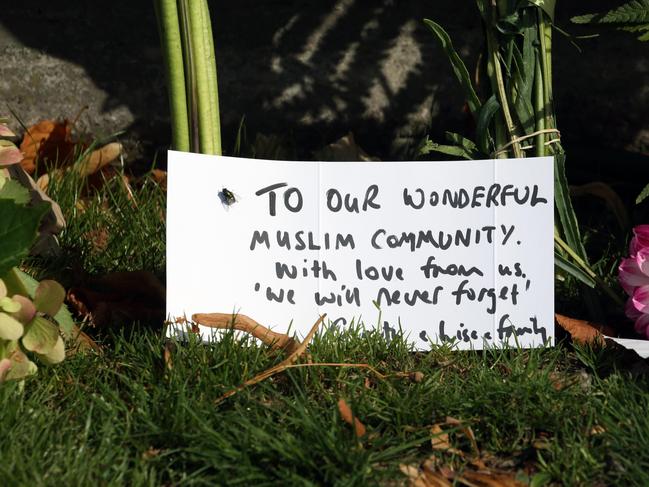 TO OUR WONDERFUL
MUSLIM COMMUNITY.
With love from us.
'we will never forget'
family